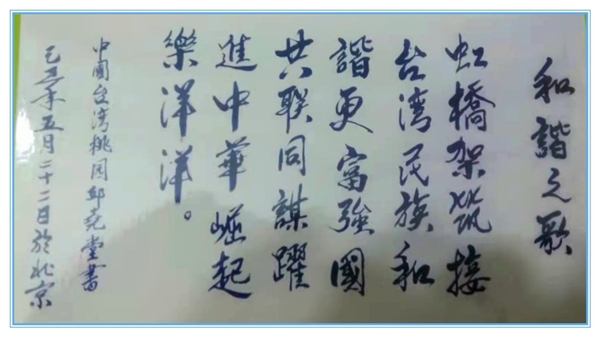 和諧之歌
虹橋架築接
台湾民族和
諧更富強國
共联同謀躍
進中華崛起
樂洋洋。
中國台湾桃园邱尧堂書
己丑年五月二十二日於北京